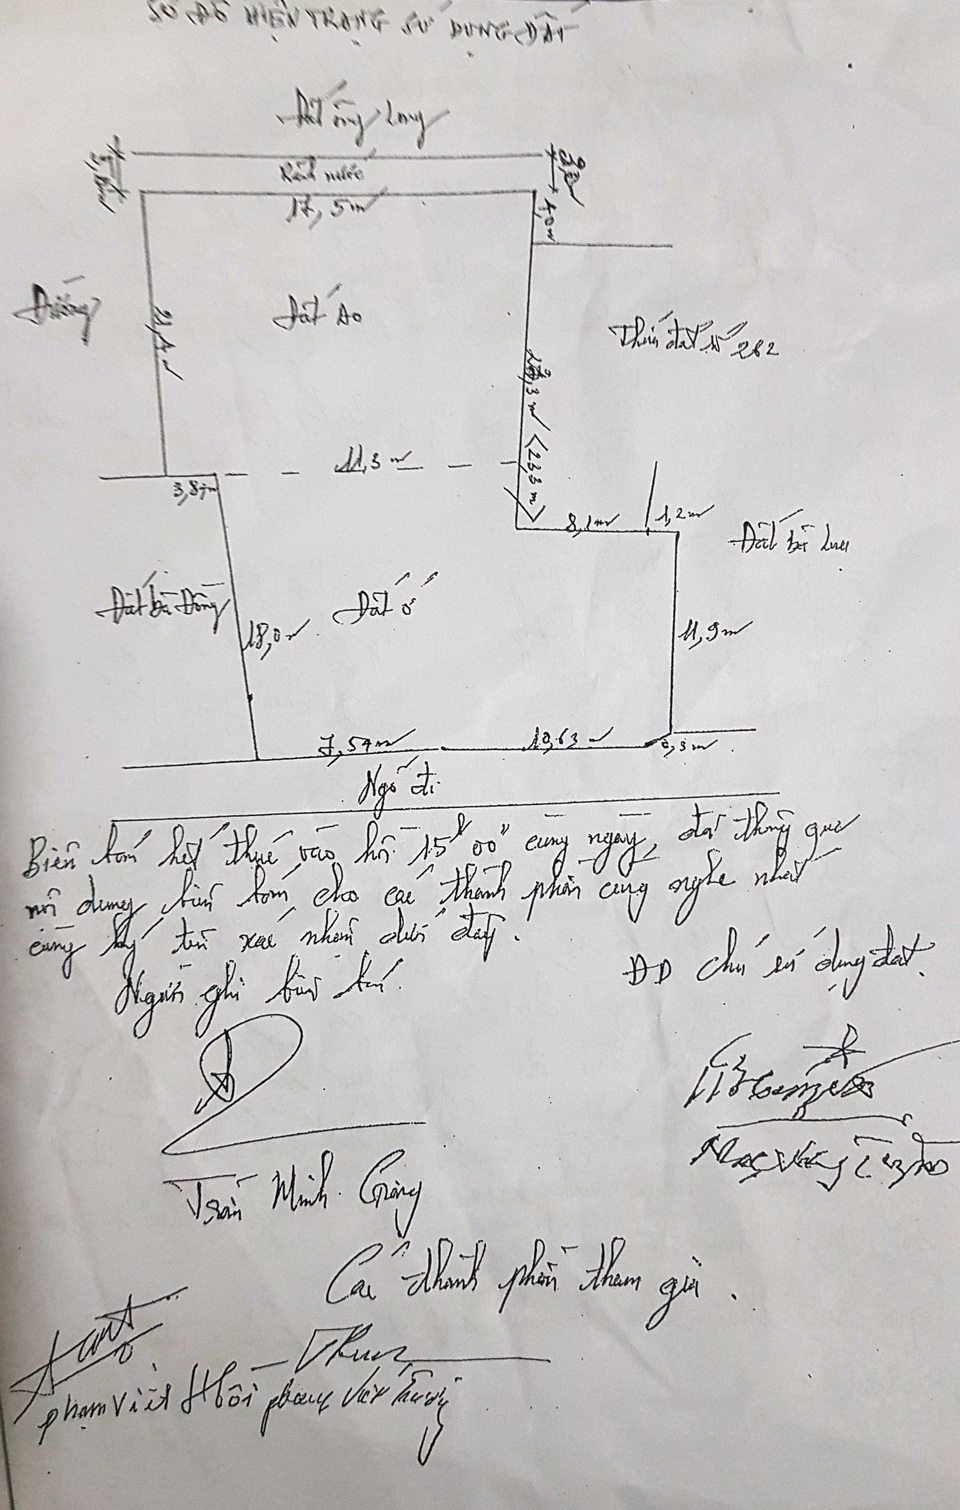 SƠ ĐỒ HIỆN TRẠNG SỬ DỤNG ĐẤT
Đất ông Long
Rãnh nước
17,5m
4,0m
Đường
21,4m
Đất Ao
Thửa đất số 262
(23,3m)
11,3m
3,87m
8,1m
1,2m
Đất bà Lưu
Đất bà Đông
18,0m
Đất ở
11,9m
7,54m
10,63m
0,3m
Ngõ đi
Biên bản kết thúc vào hồi 15h00' cùng ngày, đã thông qua
nội dung biên bản cho các thành phần cùng nghe nhất
cùng ký tên xác nhận dưới đây.
Người ghi biên bản.
ĐD chủ sử dụng đất.
Trần Minh Giang
Các thành phần tham gia.
Phạm Viết Hồi